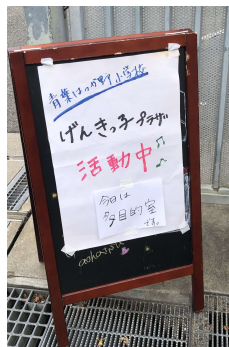 青葉はつが野小学校
げんきっ子プラザ
活動中
今日は
多目的室
です。